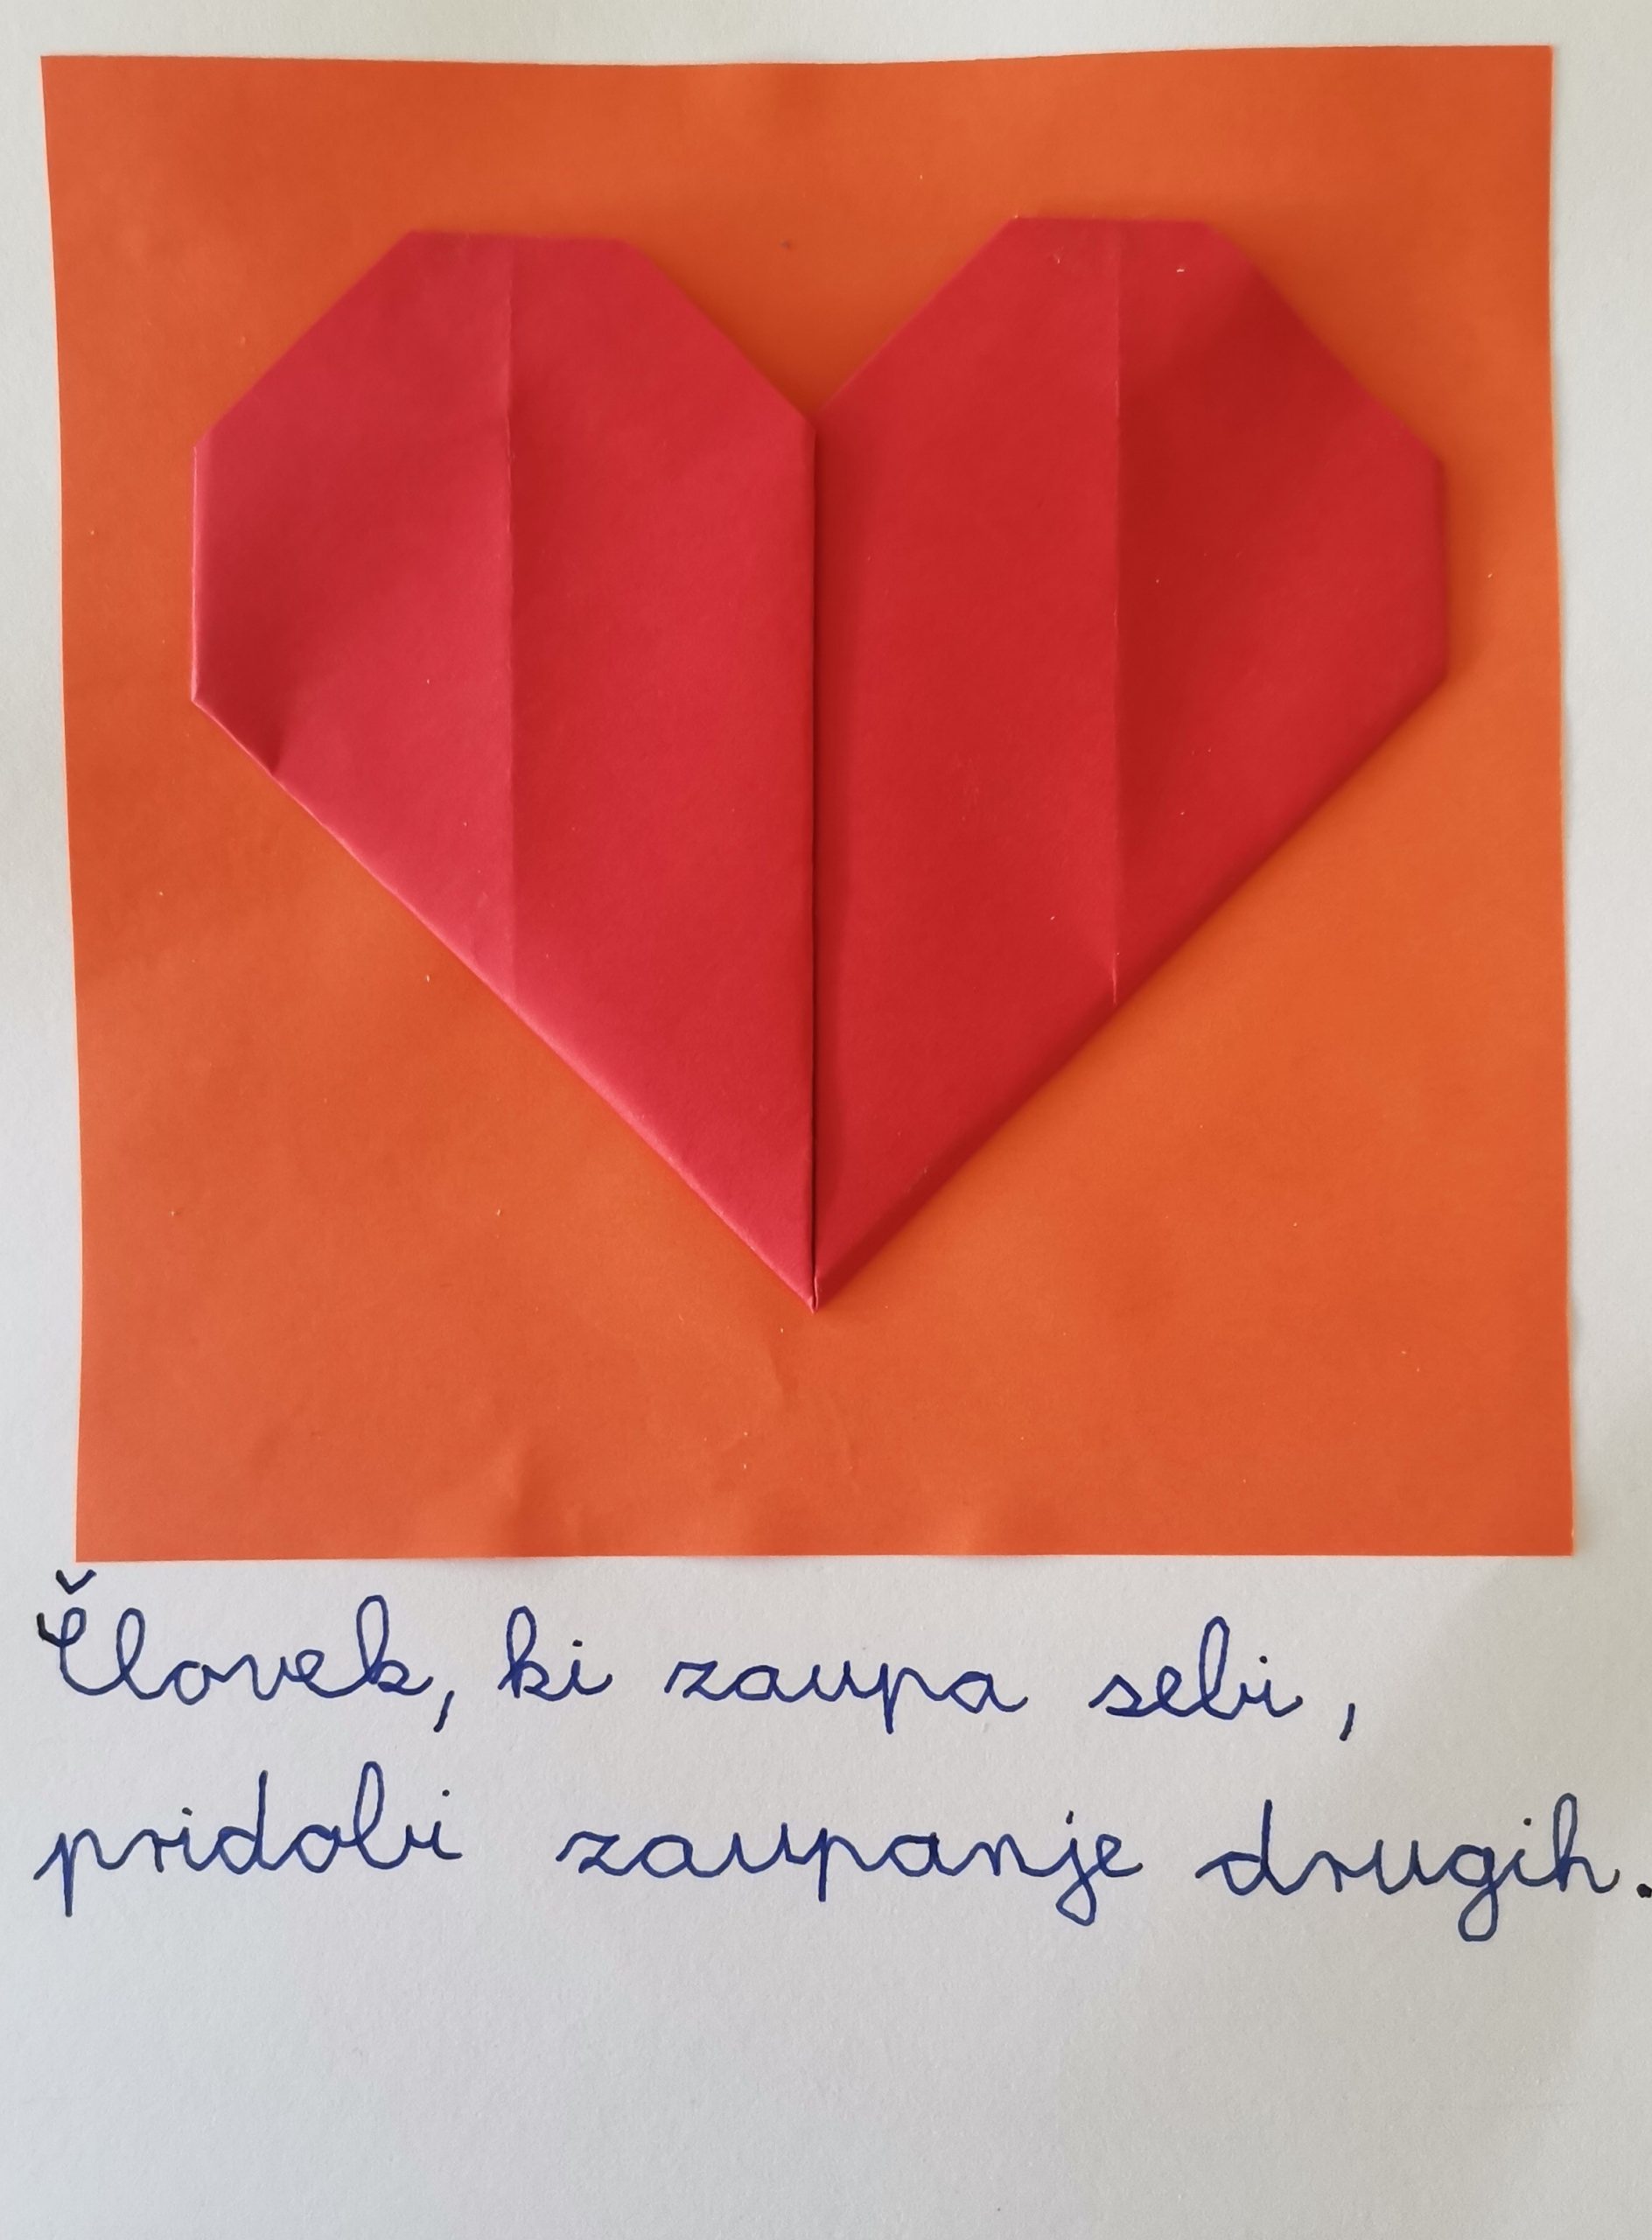 Človek, ki zaupa sebi,
pridobi zaupanje drugih.